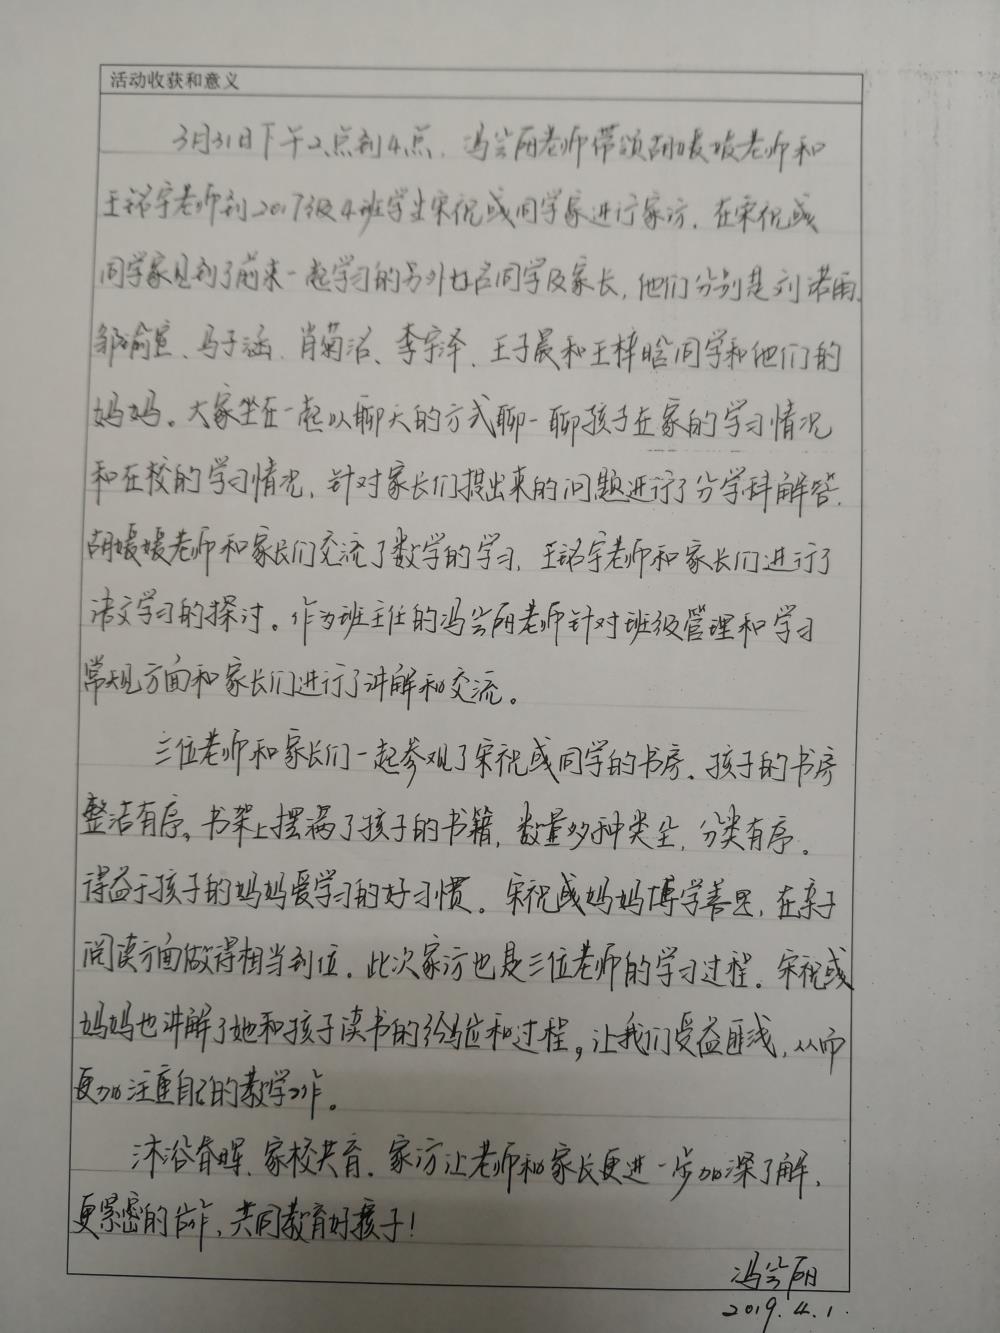 活动收获和意义
3月31日下午2点到4点，冯会丽老师带领胡媛媛老师和
王铭宇老师到2017级4班学生宋祝彧同学家进行家访，在宋祝彧
同学家见到了前来一起学习的另外七名同学及家长，他们分别是刘诺雨、
邹瑜萱、马子涵、肖菊洁、李宇泽、王子晨和王梓晗同学和他们的
妈妈。大家坐在一起以聊天的方式聊一聊孩子在家的学习情况
和在校的学习情况，针对家长们提出来的问题进行了分学科解答，
胡媛媛老师和家长们交流了数学的学习，王铭宇老师和家长们进行了
语文学习的探讨。作为班主任的冯会丽老师针对班级管理和学习
常规方面和家长们进行了讲解和交流。
三位老师和家长们一起参观了宋祝彧同学的书房。孩子的书房
整洁有序，书架上摆满了孩子的书籍，数量多种类全，分类有序。
得益于孩子的妈妈爱学习的好习惯。宋祝彧妈妈博学善思，在亲子
阅读方面做得相当到位。此次家访也是三位老师的学习过程。宋祝彧
妈妈也讲解了她和孩子读书的经验和过程，让我们受益匪浅，从而
更加注重自己的教学工作。
沐浴春晖、家校共育，家访让老师和家长更进一步加深了解，
更紧密的合作，共同教育好孩子！
冯会丽
2019.4.1.